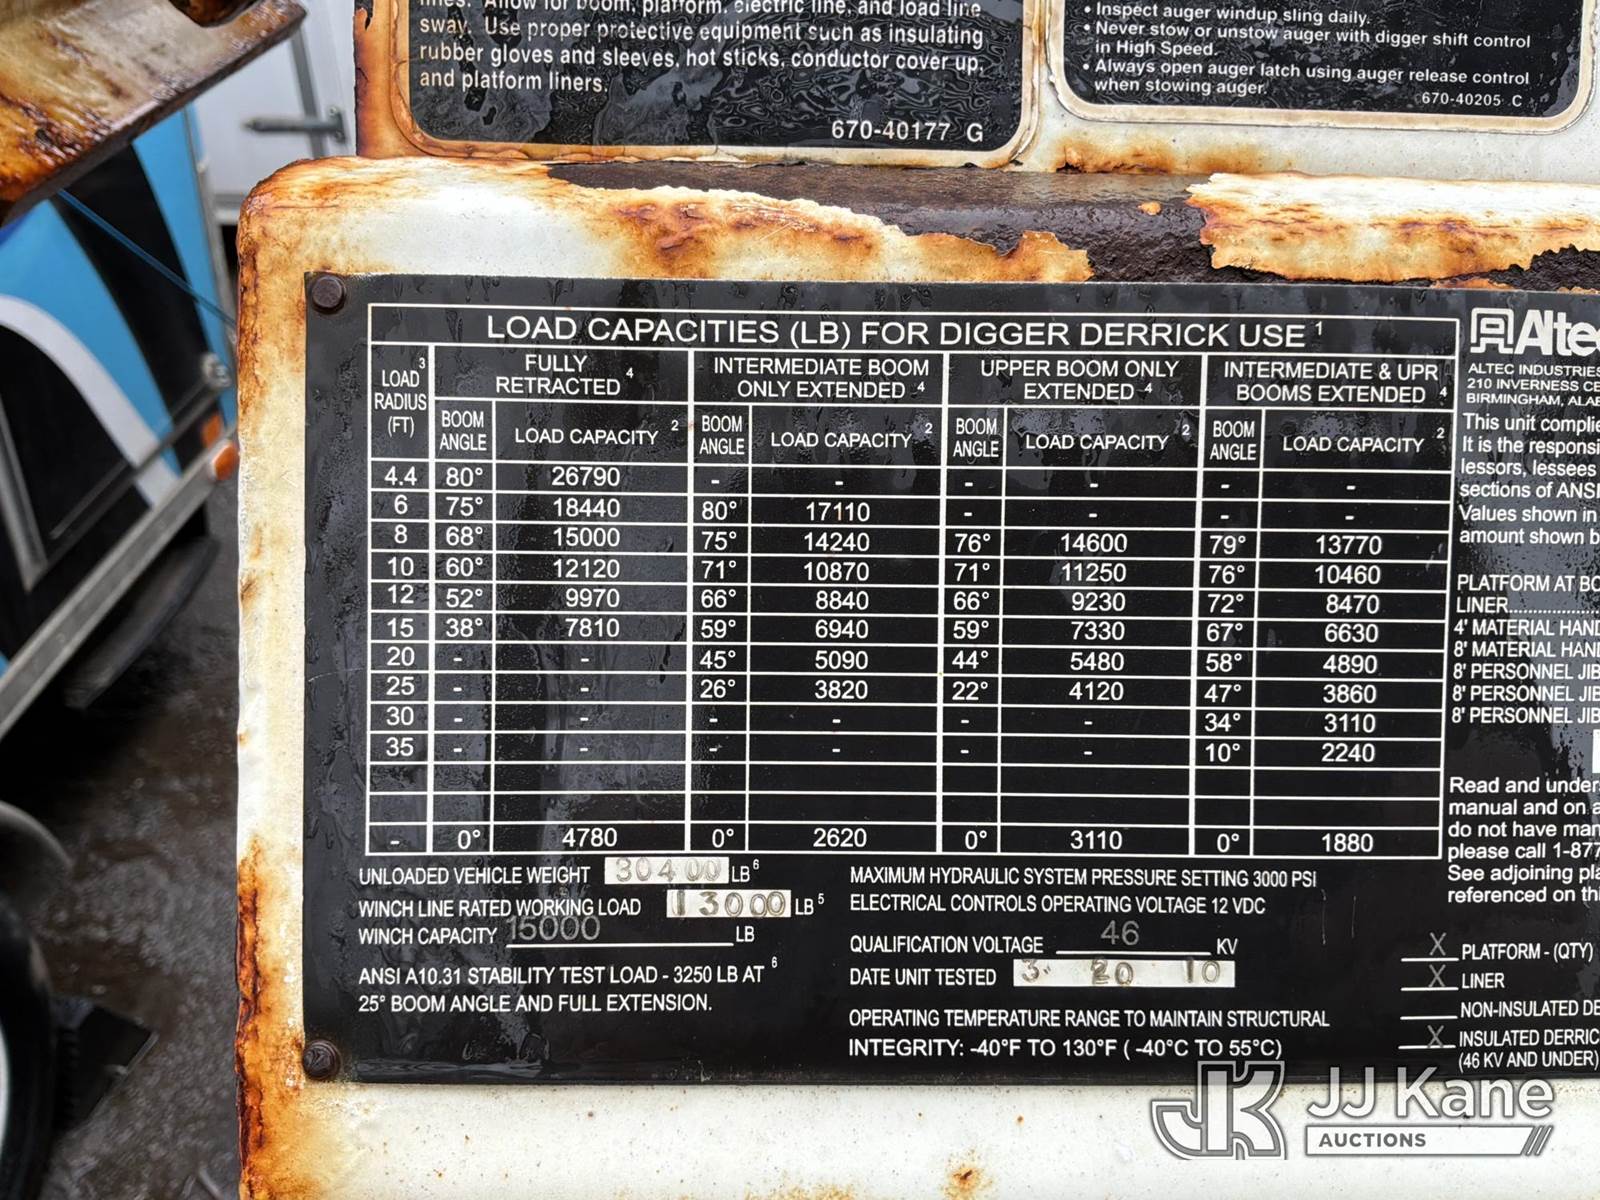 lines. Allow for boom, platform, electric line, and load line
sway. Use proper protective equipment such as insulating
rubber gloves and sleeves, hot sticks, conductor cover up,
and platform liners.
670-40177 G
• Inspect auger windup sling daily.
• Never stow or unstow auger with digger shift control
in High Speed.
• Always open auger latch using auger release control
when stowing auger.
670-40205 C
LOAD CAPACITIES (LB) FOR DIGGER DERRICK USE 1
LOAD RADIUS (FT) 3 FULLY RETRACTED 4 INTERMEDIATE BOOM ONLY EXTENDED 4 UPPER BOOM ONLY EXTENDED 4 INTERMEDIATE & UPR BOOMS EXTENDED 4
BOOM ANGLE LOAD CAPACITY 2 BOOM ANGLE LOAD CAPACITY 2 BOOM ANGLE LOAD CAPACITY 2 BOOM ANGLE LOAD CAPACITY 2
4.4 80° 26790 - - - - - -
6 75° 18440 80° 17110 - - - -
8 68° 15000 75° 14240 76° 14600 79° 13770
10 60° 12120 71° 10870 71° 11250 76° 10460
12 52° 9970 66° 8840 66° 9230 72° 8470
15 38° 7810 59° 6940 59° 7330 67° 6630
20 - - 45° 5090 44° 5480 58° 4890
25 - - 26° 3820 22° 4120 47° 3860
30 - - - - - - 34° 3110
35 - - - - - - 10° 2240
- 0° 4780 0° 2620 0° 3110 0° 1880
UNLOADED VEHICLE WEIGHT 30400 LB 6
WINCH LINE RATED WORKING LOAD 13000 LB 5
WINCH CAPACITY 15000 LB
ANSI A10.31 STABILITY TEST LOAD - 3250 LB AT 6
25° BOOM ANGLE AND FULL EXTENSION.
MAXIMUM HYDRAULIC SYSTEM PRESSURE SETTING 3000 PSI
ELECTRICAL CONTROLS OPERATING VOLTAGE 12 VDC
QUALIFICATION VOLTAGE 46 KV
DATE UNIT TESTED 3. 20 10
OPERATING TEMPERATURE RANGE TO MAINTAIN STRUCTURAL
INTEGRITY: -40°F TO 130°F ( -40°C TO 55°C)
Altec
ALTEC INDUSTRIES
210 INVERNESS CE
BIRMINGHAM, ALAB
This unit complie
It is the responsi
lessors, lessees
sections of ANSI
Values shown in
amount shown b
PLATFORM AT BO
LINER...................
4' MATERIAL HAND
8' MATERIAL HAND
8' PERSONNEL JIB
8' PERSONNEL JIB
8' PERSONNEL JIB
Read and under
manual and on a
do not have man
please call 1-877
See adjoining pla
referenced on thi
X PLATFORM - (QTY)
X LINER
NON-INSULATED DE
X INSULATED DERRIC
(46 KV AND UNDER)
JK JJ Kane
AUCTIONS